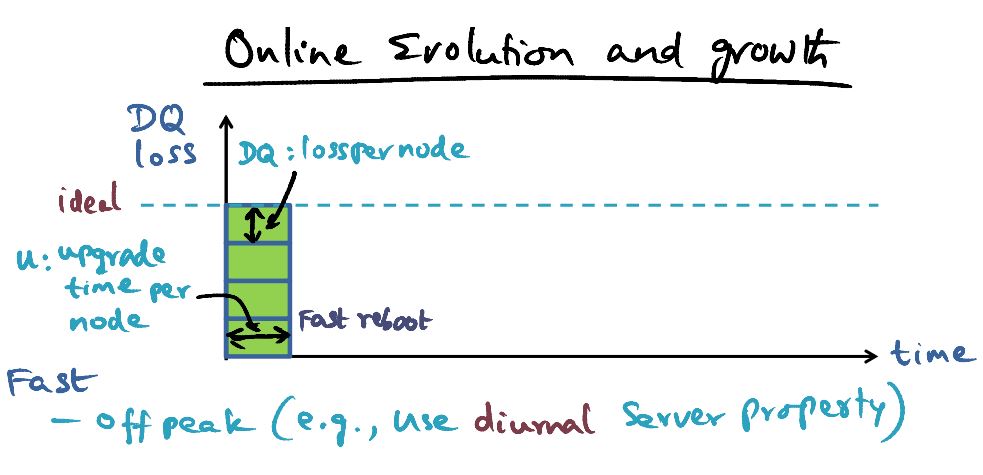 Online Evolution and growth
DQ
loss
DQ : loss per node
ideal
u: upgrade
time per
node
Fast reboot
time
Fast
- off peak (e.g., use diurnal server property)